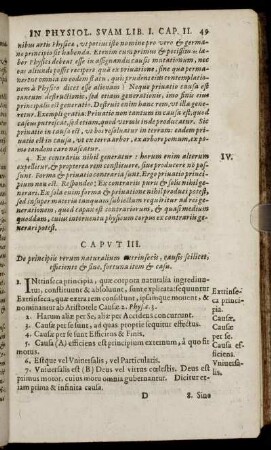 IN PHYSIOL. SVAM LIB. I. CAP. II. 49
nibus artis Physica, ut potius ipso nomine pro vero & germa-
no principio sit habenda. Etenim cum primus & potissimus
labor Physici debeat esse in assignandis causis mutationum, nec
eas aliunde possit recipere quàm ex privatione, sine qua perma-
neret omnia in eodem statu; quis prudenter im contemplatio-
nem à Physico dicet esse alienam? Neque privatio causa est
tantum destructionis, sed etiam generationis, imo finis eius
principalis est generatio. Destruit enim hanc rem, ut illa gene-
retur. Exempli gratia. Privatio non tantum in causa est, quo is
calum patescendo, sed etiam quod vermis inde producatur. Sic
privatio in causa est, ut
tandem in terra arbor, ex arbore pomum, ex po-
mo tandem care nascatur.
4. Ex contrariis nihil generatur: horum enim alterum IV.
expellitur, & propterea rem constituere, sive producere nõ pos-
sunt. Forma & privatio contraria sunt. Ergo principia
non est. Respondeo: Ex contrariis puris & solis nihil ge-
neratur. Ex sola enim forma & privatione nihil producere potest,
sed insuper materia tanquam subiectum requiritur ad rei ge-
nerationem, quod capax est contrariorum, & quasi medium
quoddam, cuius interventu physicum corpus ex contrariis gene-
rari potest.
CAPVT III.
De principiis rerum naturalium extrinsecis, causis scilicet,
efficiente & fine, fortuna item & casu.
1. INtrinseca principia, quæ corpora naturalia ingrediun-
tur, constituunt & absolvunt, sunt explicata sequuntur
Extrinseca, quæ extra rem consistunt, ipsamque movent, &
nominantur ab Aristotele Causæ 2. Phys. c. 3.
Extrinse-
ca princi-
pia.
2. Harum aliæ per Se, aliæ per Accidens concurrunt.
Causæ.
3. Causa per se sunt, ad quas propriè sequitur effectus.
Causæ
per se.
4. Causæ per se sunt Efficiens & Finis.
5. Causa (A) efficiens est principium externum, à quo fit
motus.
Causa ef-
ficiens.
6. Estque vel Vniversalis, vel Particularis.
7. Vniversalis est (B) Deus vel virtus cœlestis. Deus est
primus motor, cuius mera omnia gubernantur. Dicitur et-
iam prima & infinita causa.
Vniversa-
lis.
D 8. Sine